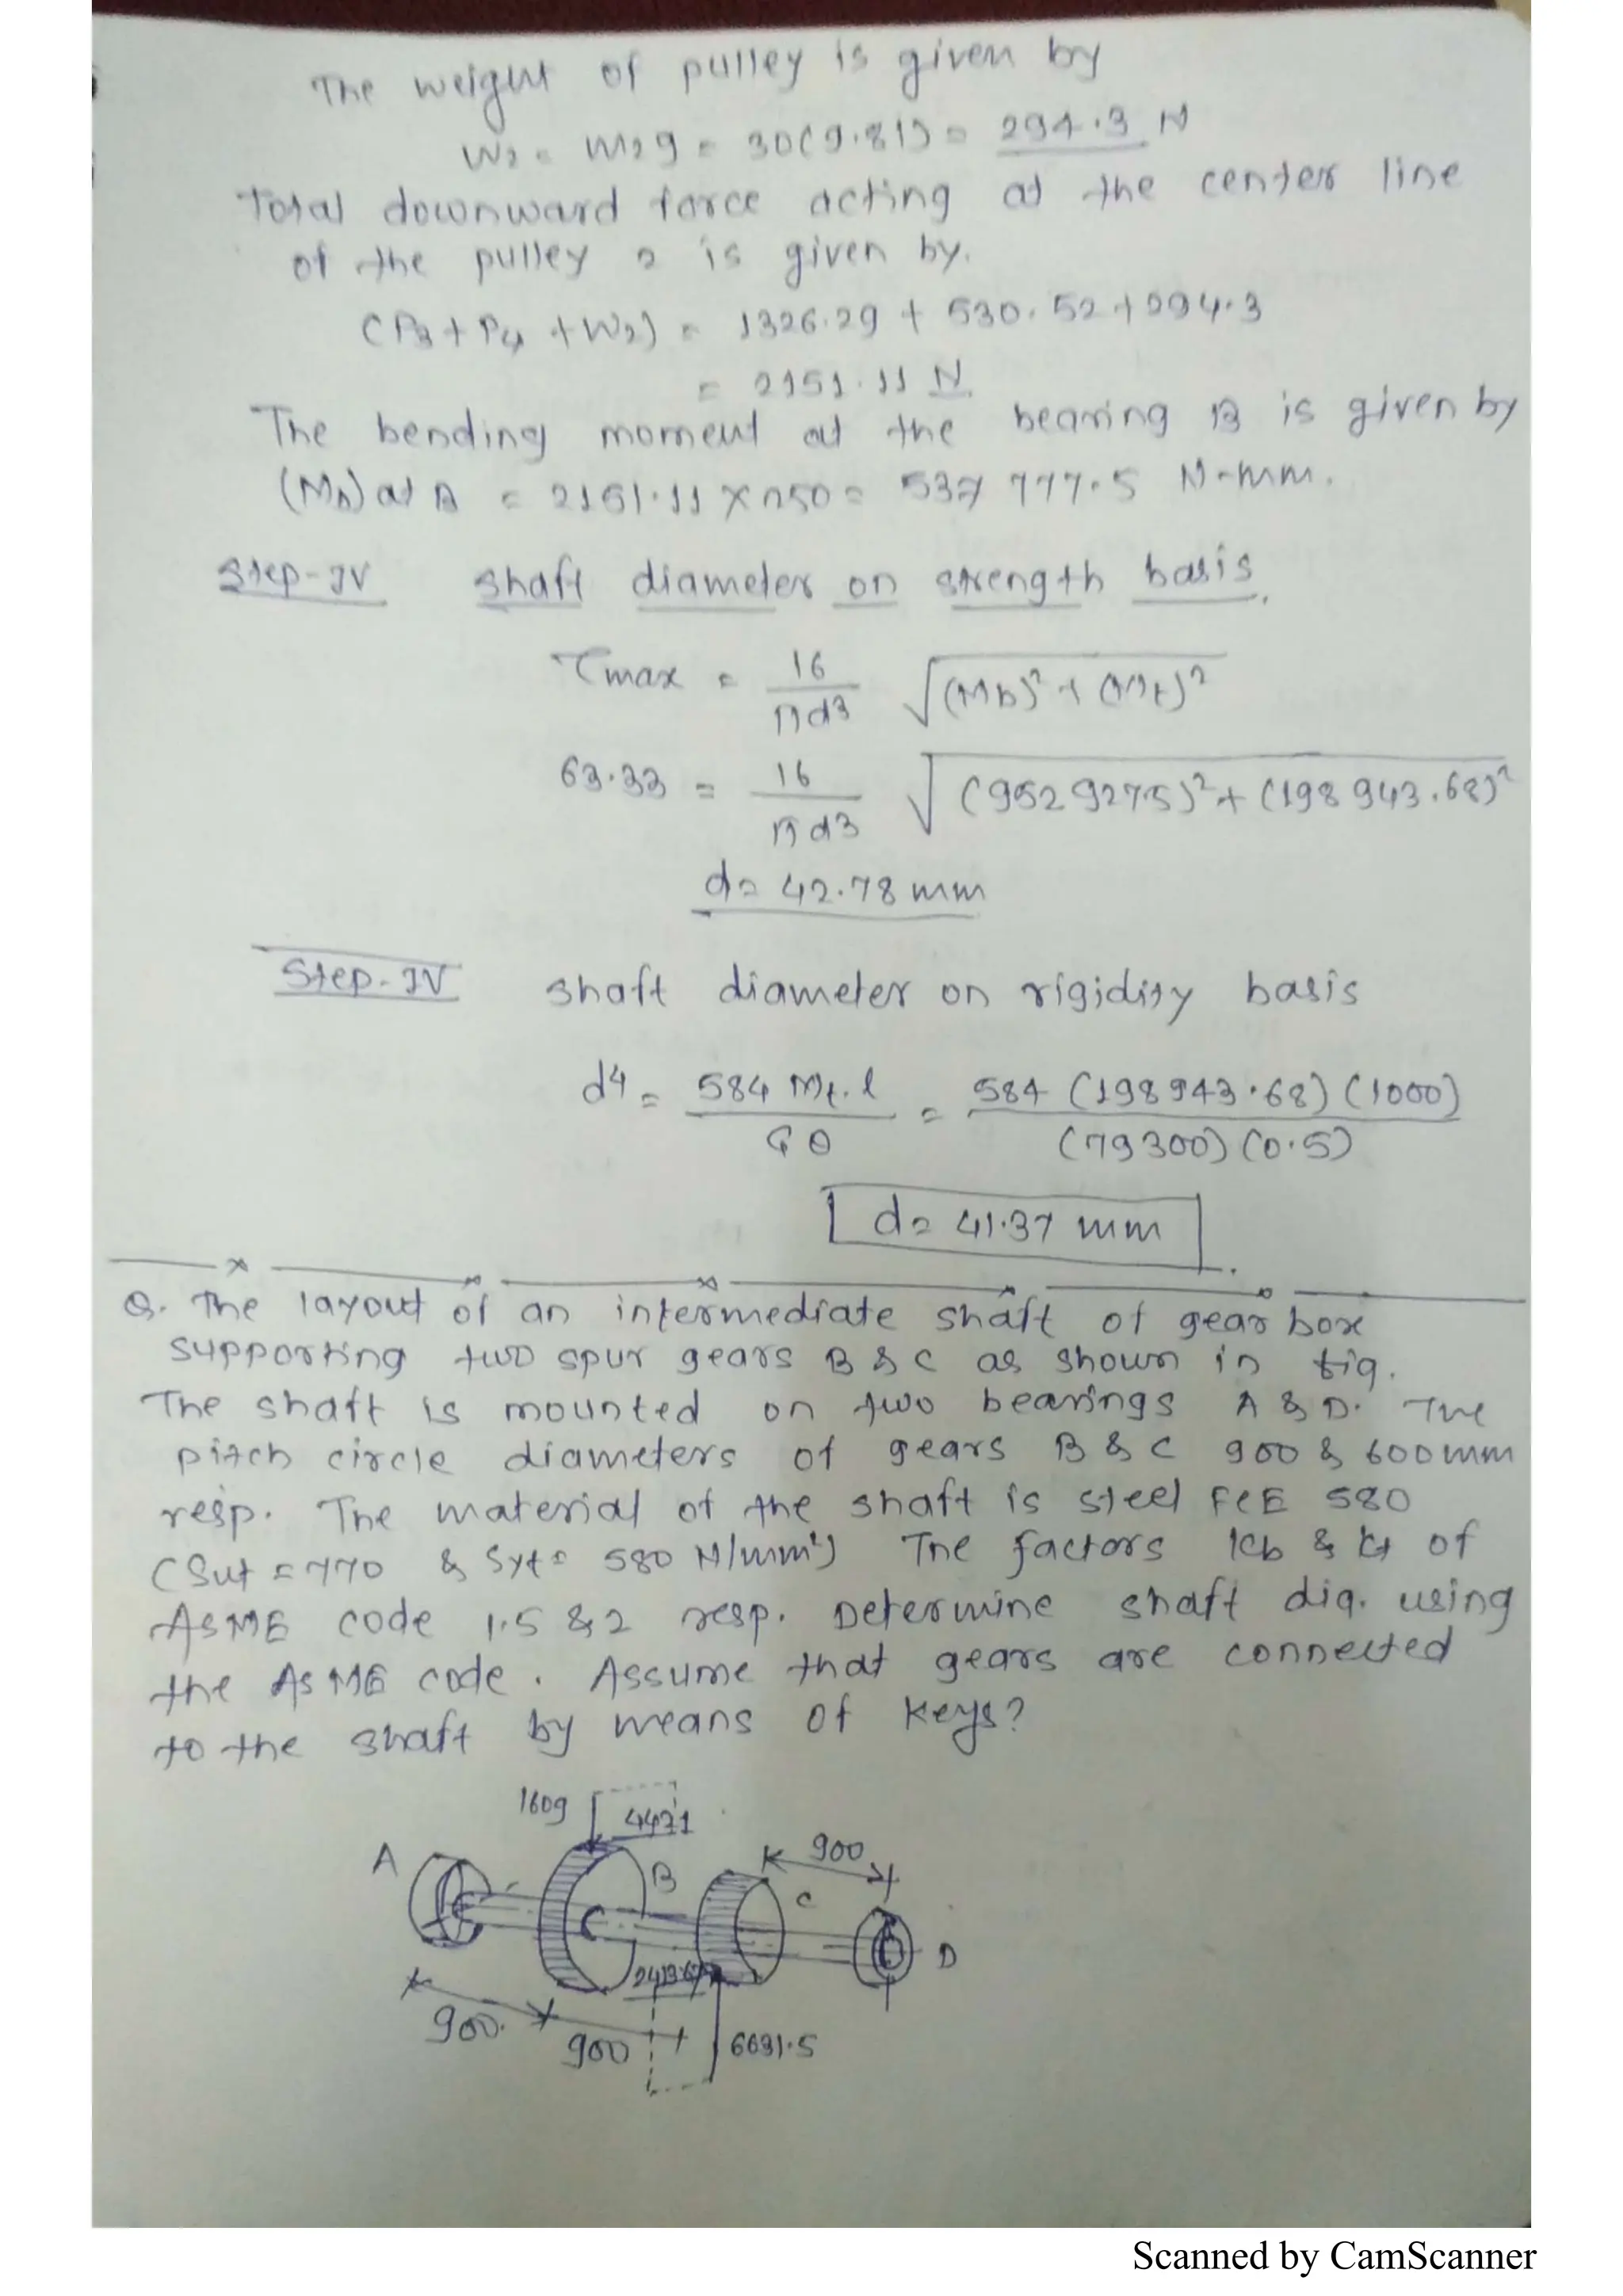 The weight of pulley is given by
W2 = m2g = 30(9.81) = 294.3 N
Total downward force acting at the center line
of the pulley 2 is given by.
(P3 + P4 + W2) = 1326.29 + 530.52 + 294.3
= 2151.11 N
The bending moment at the bearing B is given by
(Mb) at B = 2151.11 × 250 = 537 777.5 N-mm.
Step-IV shaft diameter on strength basis.
τmax = 16/πd3 √(Mb)² + (Mt)²
63.33 = 16/πd3 √(952 927.5)² + (198 943.68)²
d = 42.78 mm
Step-IV shaft diameter on rigidity basis
d4 = 584 Mt.l/Gθ = 584 (198943.68) (1000)/(79300) (0.5)
d = 41.37 mm
Q. The layout of an intermediate shaft of gear box
supporting two spur gears B & C as shown in fig.
The shaft is mounted on two bearings A & D. The
pitch circle diameters of gears B & C 900 & 600mm
resp. The material of the shaft is steel FeE 580
(Sut = 770 & Syt = 580 N/mm²) The factors kb & kt of
ASME code 1.5 & 2 resp. Determine shaft dia. using
the ASME code. Assume that gears are connected
to the shaft by means of keys?
1609 4421
A B C 900
D
900. 900 6631.5
Scanned by CamScanner